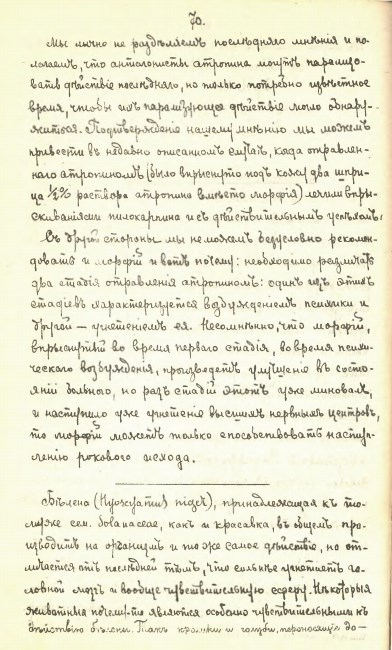 70.
Мы лично не раздѣляемъ послѣдняго мнѣнія и по-
лагаемъ, что антагонисты атропина могутъ парализо-
вать дѣйствіе послѣдняго, но только потребно извѣстное
время, чтобы ихъ парализующее дѣйствіе могло обнару-
житься. Подтвержденіе нашему мнѣнію мы можемъ
привести въ недавно описанномъ случаѣ, когда отравлен-
наго атропиномъ (было впрыснуто подъ кожу два шпри-
ца ½% раствора атропина вмѣсто морфія) лечили впры-
скиваніями пилокарпина и съ дѣйствительнымъ успѣхомъ.
Съ другой стороны мы не можемъ безусловно рекомен-
довать и морфій и вотъ почему: необходимо различать
два стадія отравленія атропиномъ: одинъ изъ этихъ
стадіевъ характеризуется возбужденіемъ психики и
другой — угнетеніемъ ея. Несомнѣнно, что морфій,
впрыснутый во время перваго стадія, во время психи-
ческаго возбужденія, произведетъ улучшеніе въ состо-
яніи больного, но разъ стадій этотъ уже миновалъ,
и наступило уже угнетеніе высшихъ нервныхъ центровъ,
то морфій можетъ только способствовать наступ-
ленію рокового исхода.
Бѣлена (Hyoscyamus niger), принадлежащая къ то-
му же сем. Solanaceae, какъ и красавка, въ общемъ про-
изводитъ на организмъ то же самое дѣйствіе, но от-
личается отъ послѣдней тѣмъ, что сильнѣе угнетаетъ го-
ловной мозгъ и вообще чувствительную сферу. Нѣкоторыя
животныя почему-то являются особенно чувствительными къ
дѣйствію бѣлены. Такъ кролики и голуби, переносящіе до-